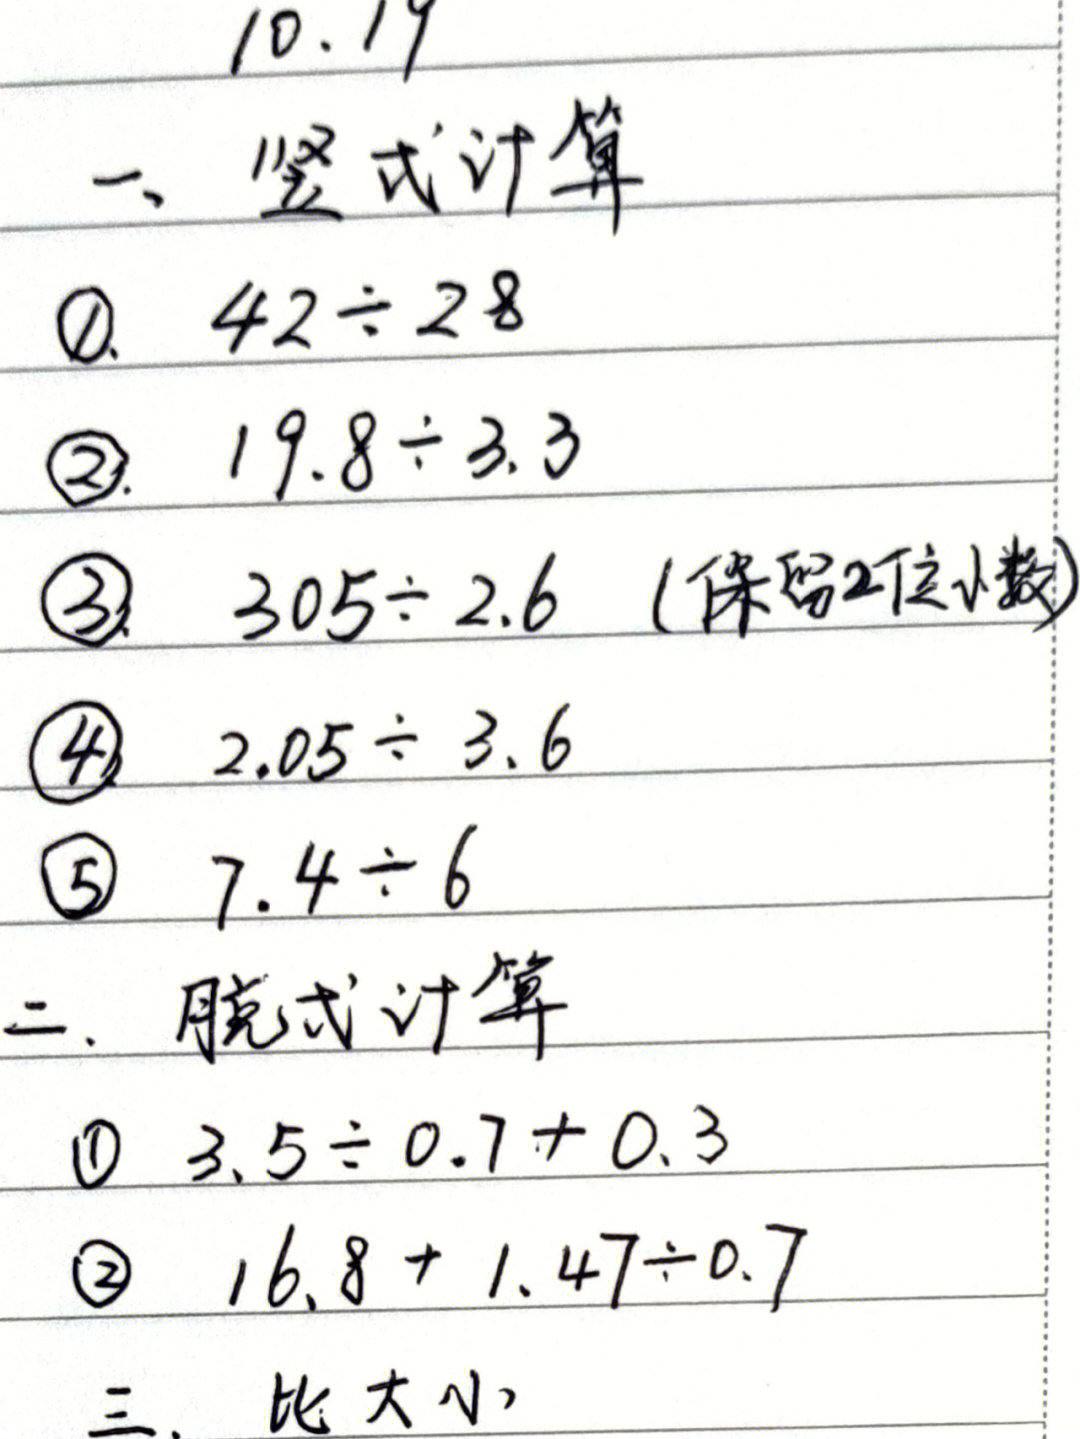 10.19
一、竖式计算
①. 42÷28
②. 19.8÷3.3
③. 305÷2.6 (保留2位小数)
④. 2.05÷3.6
⑤ 7.4÷6
二、脱式计算
① 3.5÷0.7+0.3
② 16.8+1.47÷0.7
三、比大小